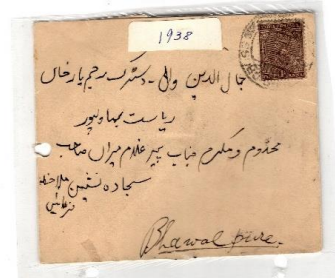 1938
جمال الدین والی - ڈسٹرکٹ رحیم یار خاں
ریاست بہاولپور
مخدوم و مکرم جناب پیر غلام میراں صاحب
سجادہ نشین ملاحظہ
فرمائیں
Bhawalpure.